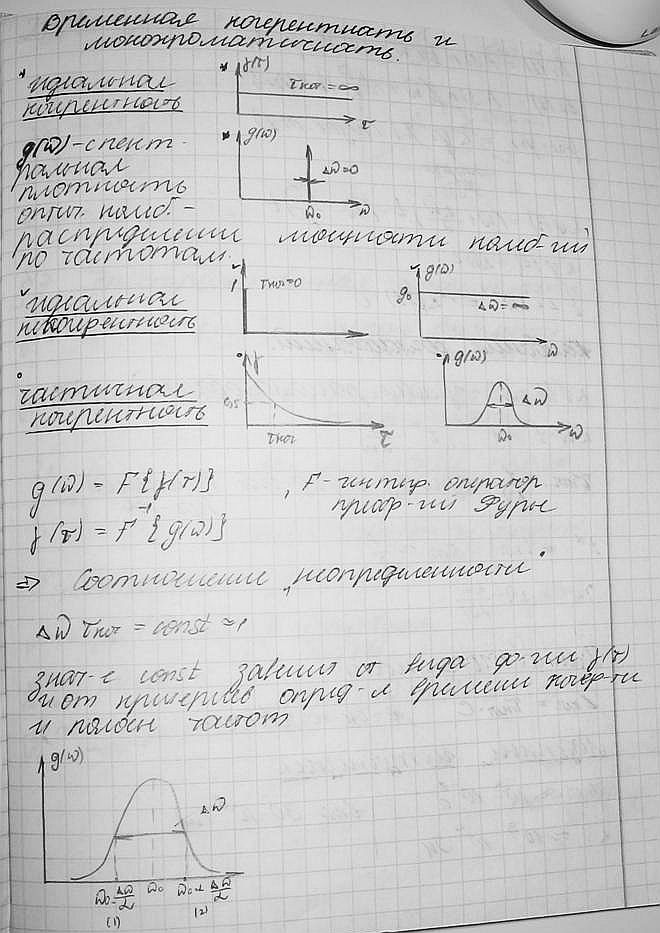 Временная когерентность и
монохроматичность.
* идеальная
когерентность
* γ(τ)
τког = ∞
τ
g(ω̃) - спект-
ральная
плотность
оптич. колеб. -
распределении мощности колеб-ий
по частотам.
* g(ω̃)
Δω̃=0
ω̃₀
ω̃
ˇ идеальная
некогерентность
1
τког=0
g(ω̃)
g₀
Δω̃ = ∞
ω̃
° частичная
когерентность
γ
0,5
τког
τ
g(ω̃)
Δω̃
ω̃₀
ω̃
g(ω̃) = F{γ(τ)} , F - интегр. оператор
преобр-ий Фурье
γ(τ) = F⁻¹{g(ω̃)}
⇒ Соотношение „неопределенности"
Δω̃ τког = const ≈ 1
знач-е const зависит от вида ф-ии γ(τ)
и от критериев опред-я времени когер-ти
и полосы частот
g(ω̃)
Δω̃
ω̃₀ - Δω̃/2
ω̃₀
ω̃₀ + Δω̃/2
ω̃
(1)
(2)